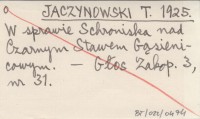 JACZYNOWSKI T. 1925.
W sprawie Schroniska nad
Czarnym Stawem Gąsieni-
cowym. — Głos Zakop. 3,
nr 31.